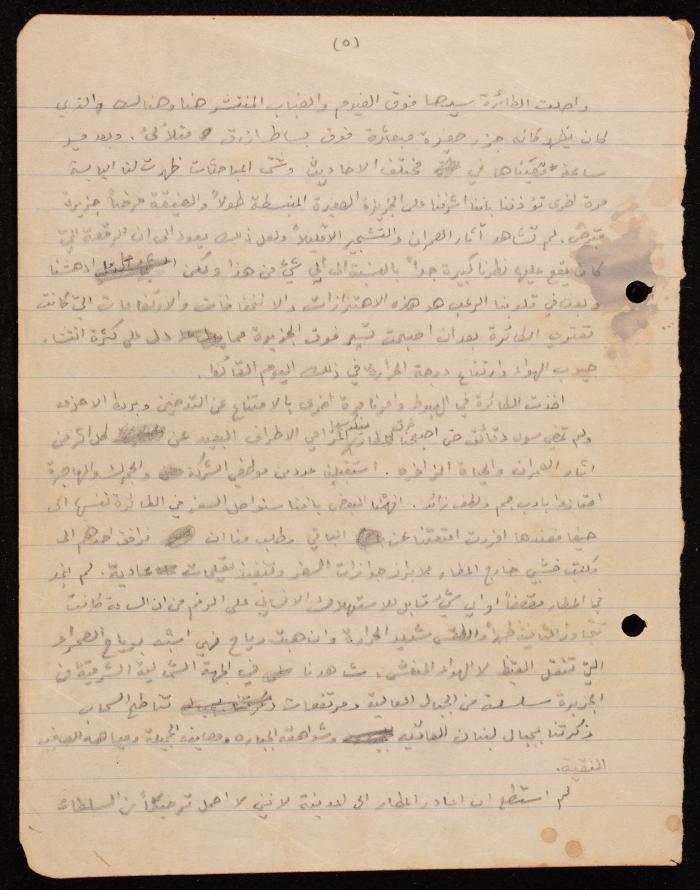 (٥)
واصلت الطائرة سيرها فوق الغيوم والضباب المنتشر هنا وهنالك والذي
كان يظهر كأنه جزر صغيرة مبعثرة فوق بساط ازرق متلألئ. وبعد مسير
ساعة قضيناها في مختلف الاحاديث وشتى المباحثات ظهرت لنا اليابسة
مرة اخرى تؤذننا بأننا اشرفنا على الجزيرة الصغيرة المنبسطة طولاً والضيقة عرضاً جزيرة
قبرص. لم نشاهد آثار العمران والتشجير الا قليلاً ولعل ذلك يعود الى ان الرقعة التي
كان يقع عليها نظرنا كبيرة جداً بالنسبة الى اي شيء من هذا ولكن الذي ادهشنا
وبعث في قلوبنا الرعب هو هذه الاهتزازات والانخفاضات والارتفاعات التي كانت
تعتري الطائرة بعد ان اصبحت تسير فوق الجزيرة مما دلنا على كثرة انتشار
جيوب الهواء وارتفاع درجة الحرارة في ذلك اليوم القائظ.
اخذت الطائرة في الهبوط وامرنا مرة اخرى بالامتناع عن التدخين وبربط الاحزمة
ولم تمض سوى دقائق حتى اصبحنا فوق مطار المترامي الاطراف البعيد عن كل اثر من
اثار العمران والحياة الزاخرة. استقبلنا عدد من موظفي الشركة والجمرك والمهاجرة
امتازوا بادب جم ولطف زائد. افهمنا البعض بأننا سنواصل السفر في الطائرة نفسها الى
حيفا فعندها افرزت امتعتنا عن الباقي وطلب منا ان نرافق احدهم الى
كشك خشبي خارج المطار لابراز جوازات السفر وتنفيذ تعليمات عادية. لم نجد
في المطار مقصفاً او اي شيء قابل للاستهلاك الانساني على الرغم من ان الساعة كانت
تجاوز الثانية ظهراً والطقس شديد الحرارة وان هبت رياح فهي اشبه برياح الصحراء
التي تنقل القيظ لا الهواء المنعش. شاهدنا في الجهة الشمالية الشرقية من
الجزيرة سلسلة من الجبال العالية ومرتفعات تناطح السحاب
ذكرتنا بجبال لبنان العاتية وشواهقه الجبارة ومصايفه الجميلة ومياهه الصافية
النقية.
لم استطع ان اغادر المطار الى المدينة لانني لا احمل ترخيصاً من السلطات